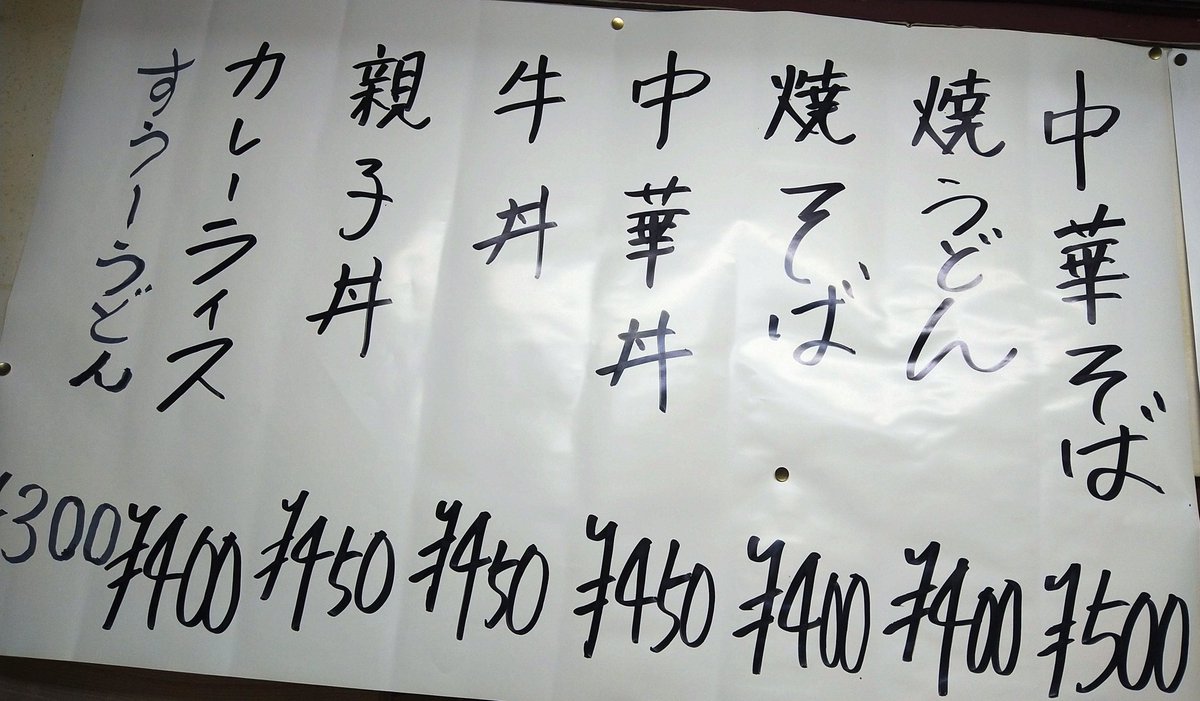 中華そば ¥500
焼うどん ¥400
焼そば ¥400
中華丼 ¥450
牛丼 ¥450
親子丼 ¥450
カレーライス ¥400
すうーうどん ¥300